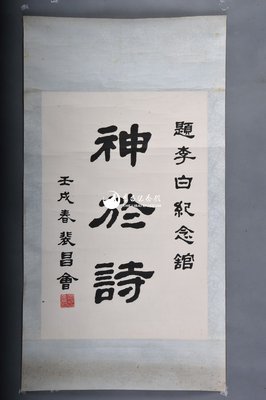 題李白紀念舘
神於詩
壬戌春裴昌會